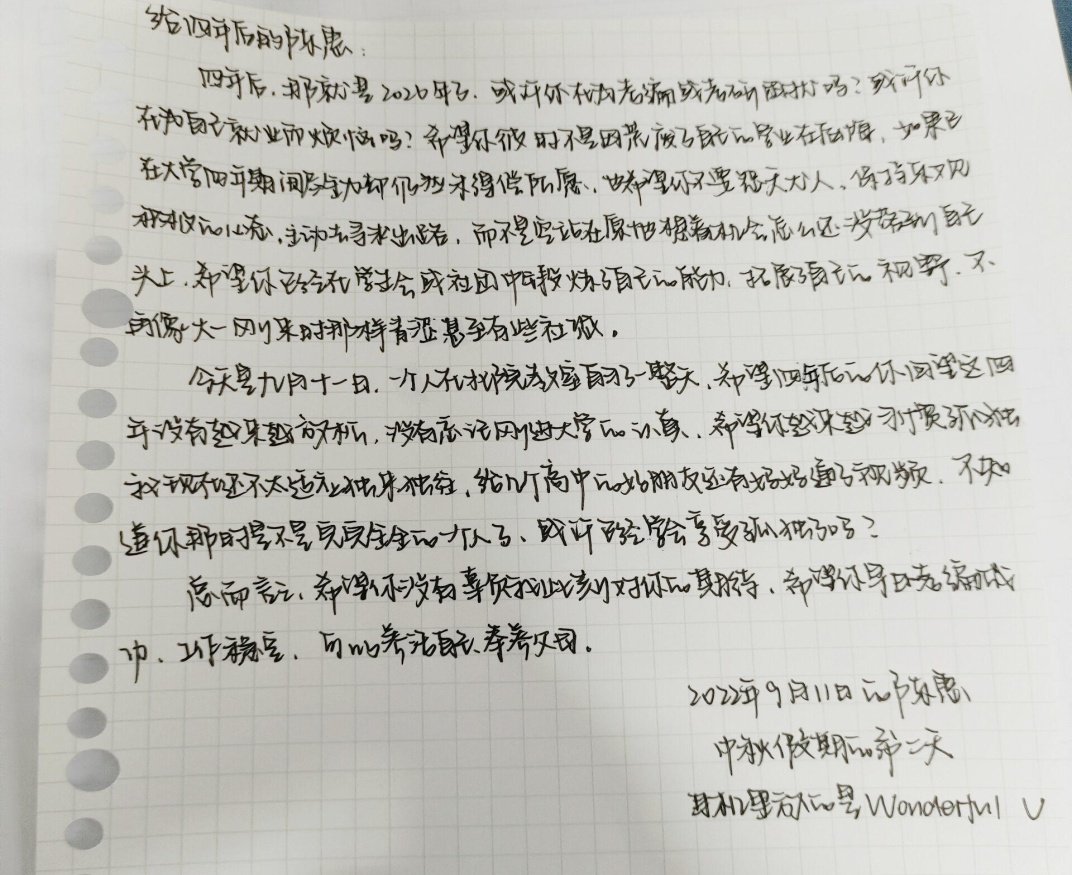 给四年后的陈思:
四年后,那就是2026年了,或许你在为考编或考研困扰吗?或许你
在为自己就业而烦恼吗?希望你彼时不是因荒废了自己的学业在后悔,如果已
在大学四年期间尽全力却仍然未得偿所愿,也希望你不要怨天尤人,保持乐观
积极的心态,主动去寻求出路,而不是空站在原地想着机会怎么还没落到自己
头上,希望你已经在学生会或社团中锻炼了自己的能力,拓展了自己的视野,不
再像大一刚来时那样青涩甚至有些社恐。
今天是九月十一日,一个人在教室自习了一整天,希望四年后的你回望这四
年没有越来越放松,没有忘记刚进大学的认真,希望你越来越习惯孤独
我现在还不太适应独来独往,给几个高中的好朋友还有好好通了视频,不知
道你那时是不是完完全全的一个人了、或许已经学会享受孤独了吗?
总而言之,希望你没有辜负我此刻对你的期待,希望你早日考编成
功、工作稳定、可以养活自己、奉养父母。
2022年9月11日的陈思
中秋假期的第二天
耳机里放的是Wonderful U